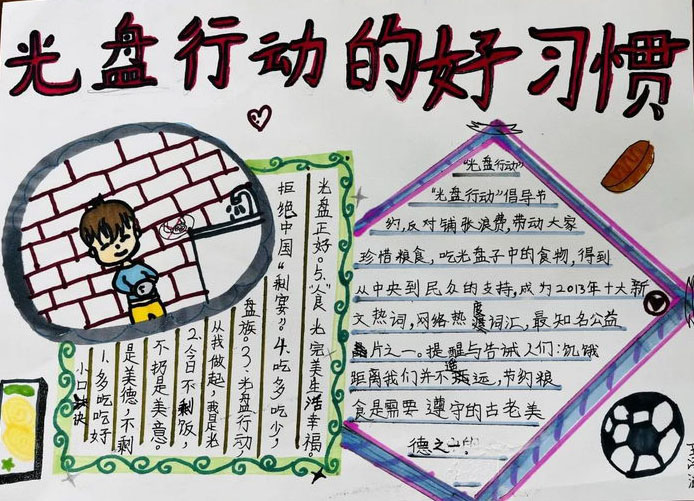 光盘行动的好习惯
小口诀
1.多吃吃好
是美德,不剩
不扔是美意。
2.今日不剩饭,
从我做起,我是光
盘族。3、光盘行动,
拒绝中国“剩宴”。4.吃多吃少,
光盘正好。5、“人”食光完美生活幸福。
“光盘行动”
“光盘行动”倡导节
约,反对铺张浪费,带动大家
珍惜粮食,吃光盘子中的食物,得到
从中央到民众的支持,成为2013年十大新
文热词,网络热度词汇,最知名公益
片之一。提醒与告诫人们:饥饿
距离我们并不遥远,节约粮
食是需要遵守的古老美
德之一的